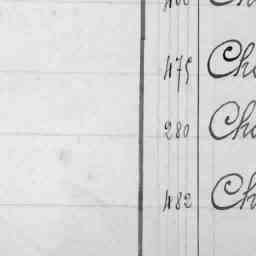 475 Cha
280 Cha
482 Cha